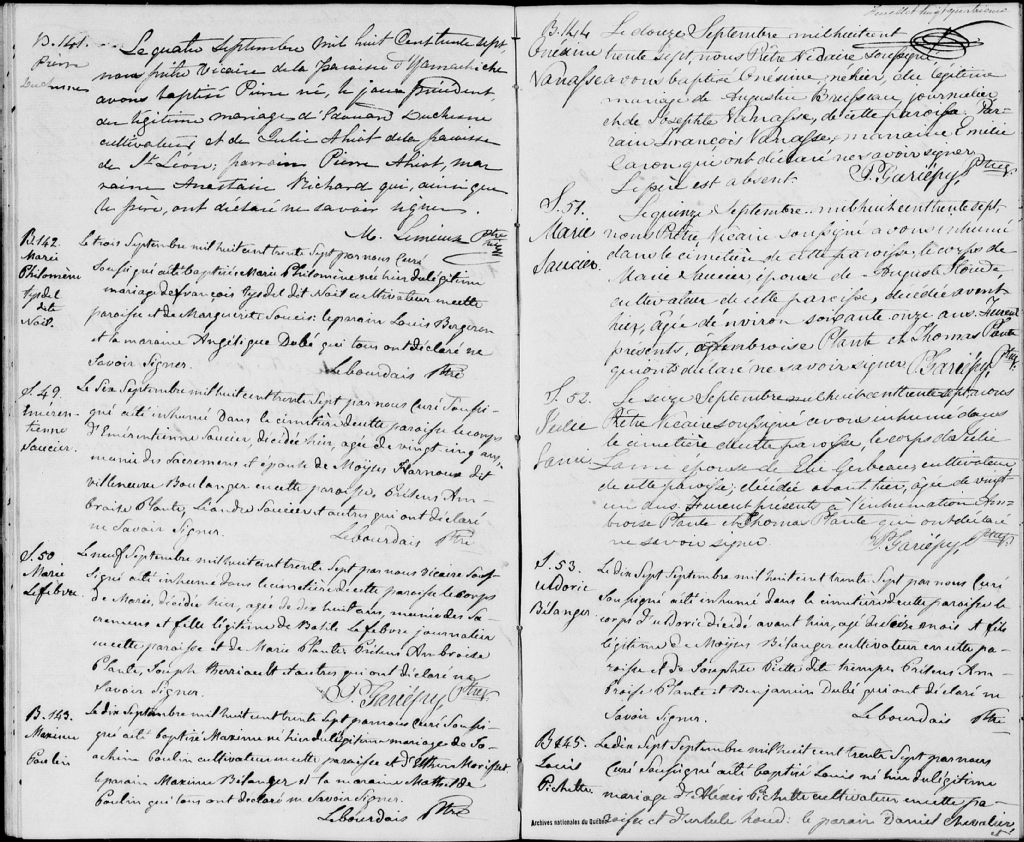 B. 141.
Pierre
Duchesne
Le quatre Septembre mil huit cent trente sept
nous prêtre Vicaire de la paroisse d'Yamachiche
avons baptisé Pierre né, le jour précédent,
du légitime mariage d'Edouard Duchesne
cultivateur et de Julie Ahiot de la paroisse
de St Léon; parrain Pierre Ahiot, mar
raine Anastasie Richard qui, ainsi que
le père, ont déclaré ne savoir signer.
M. Lemieux Ptre
B. 142.
Marie
Philomène
dite
Noël.
Le trois Septembre mil huit cent trente Sept par nous Curé
Soussigné a été baptisée Marie Philomène née hier du légitime
mariage de François dit Noël cultivateur en cette
paroisse et de Marguerite Saucis: le parain Louis Bergeron
et la maraine Angélique Dubé qui tous ont déclaré ne
Savoir Signer.
Lebourdais Ptre
S. 49.
Emeren-
tienne
Saucier.
Le Six Septembre mil huit cent trente Sept par nous Curé Soussi-
gné a été inhumé dans le cimetière de cette paroisse le corps
d'Emérentienne Saucier, décédée hier, agée de vingt cinq ans,
munie des Sacremens et épouse de Moÿses dit
villeneuve Boulanger en cette paroisse, Présens Am-
broise Plante, Léandre Saucier et autres qui ont déclaré
ne Savoir Signer.
Lebourdais Ptre
S. 50
Marie
Lefebvre.
Le neuf Septembre mil huit cent trente Sept par nous vicaire Sous-
Signé a été inhumé dans le cimetière de cette paroisse le corps
de Marie, décédée hier, agée de dix huit ans, munie des Sa-
cremens et fille légitime de Basile Lefebvre journalier
en cette paroisse et de Marie Plante Présens Ambroise
Plante, Joseph Herriault et autres qui ont déclaré ne
Savoir Signer.
P. Gariépy, Ptre
B. 143.
Maxime
Poulin
Le dix Septembre mil huit cent trente Sept par nous Curé Soussi-
gné a été baptisé Maxime né hier du légitime mariage de Jo-
achim Poulin cultivateur en cette paroisse et d'Esther Morisset
le parain Maxime Bélanger et la maraine Mathilde
Poulin qui tous ont déclaré ne Savoir Signer.
Lebourdais Ptre
feuillet vingt quatrième
B. 144
Onésime
Vanasse
Le douze Septembre mil huit cent
trente sept, nous Prêtre Vicaire soussigné
avons baptisé Onésime, né hier, du légitime
mariage de Augustin Brusseau, journalier
et de Josephte Vanasse, de cette paroisse. Par-
rain François Vanasse, marraine Emelie
Caron qui ont déclaré ne savoir signer
Le père est absent.
P. Gariépy, Ptre
S. 51.
Marie
Saucier.
Le quinze Septembre mil huit cent trente sept,
nous Prêtre Vicaire soussigné avons inhumé
dans le cimetière de cette paroisse, le corps de
Marie Saucier, épouse de Auguste
cultivateur de cette paroisse, décédée avant
hier, agée d'environ soixante onze ans. Furent
présents, Ambroise Plante et Thomas Plante
qui ont déclaré ne savoir signer P. Gariépy, Ptre
S. 52.
Julie
Lami
Le seize Septembre mil huit cent trente sept, nous
Prêtre Vicaire soussigné avons inhumé dans
le cimetière de cette paroisse, le corps de Julie
Lami épouse de Elie Gerbeau, cultivateur
de cette paroisse; décédée avant hier, agée de vingt-
un ans. Furent présents à l'inhumation Am-
broise Plante et Thomas Plante qui ont déclaré
ne savoir signer
P. Gariépy, Ptre
S. 53.
Ludovic
Bélanger
Le dix Sept Septembre mil huit cent trente Sept par nous Curé
Soussigné a été inhumé dans le cimetière de cette paroisse le
corps d'Ludovic décédé avant hier, agé de onze mois et fils
légitime de Moÿses Bélanger cultivateur en cette pa-
roisse et de Josephte dite Présens Am-
broise Plante et Benjamin Dubé qui ont déclaré ne
Savoir Signer.
Lebourdais Ptre
B. 145.
Louis
Pichette
Le dix Sept Septembre mil huit cent trente Sept par nous
Curé Soussigné a été baptisé Louis né hier du légitime
mariage d'Alexis Pichette cultivateur en cette pa-
roisse et d'Ursule houd: le parain Daniel Chevalier,
et
Archives nationales du Québec